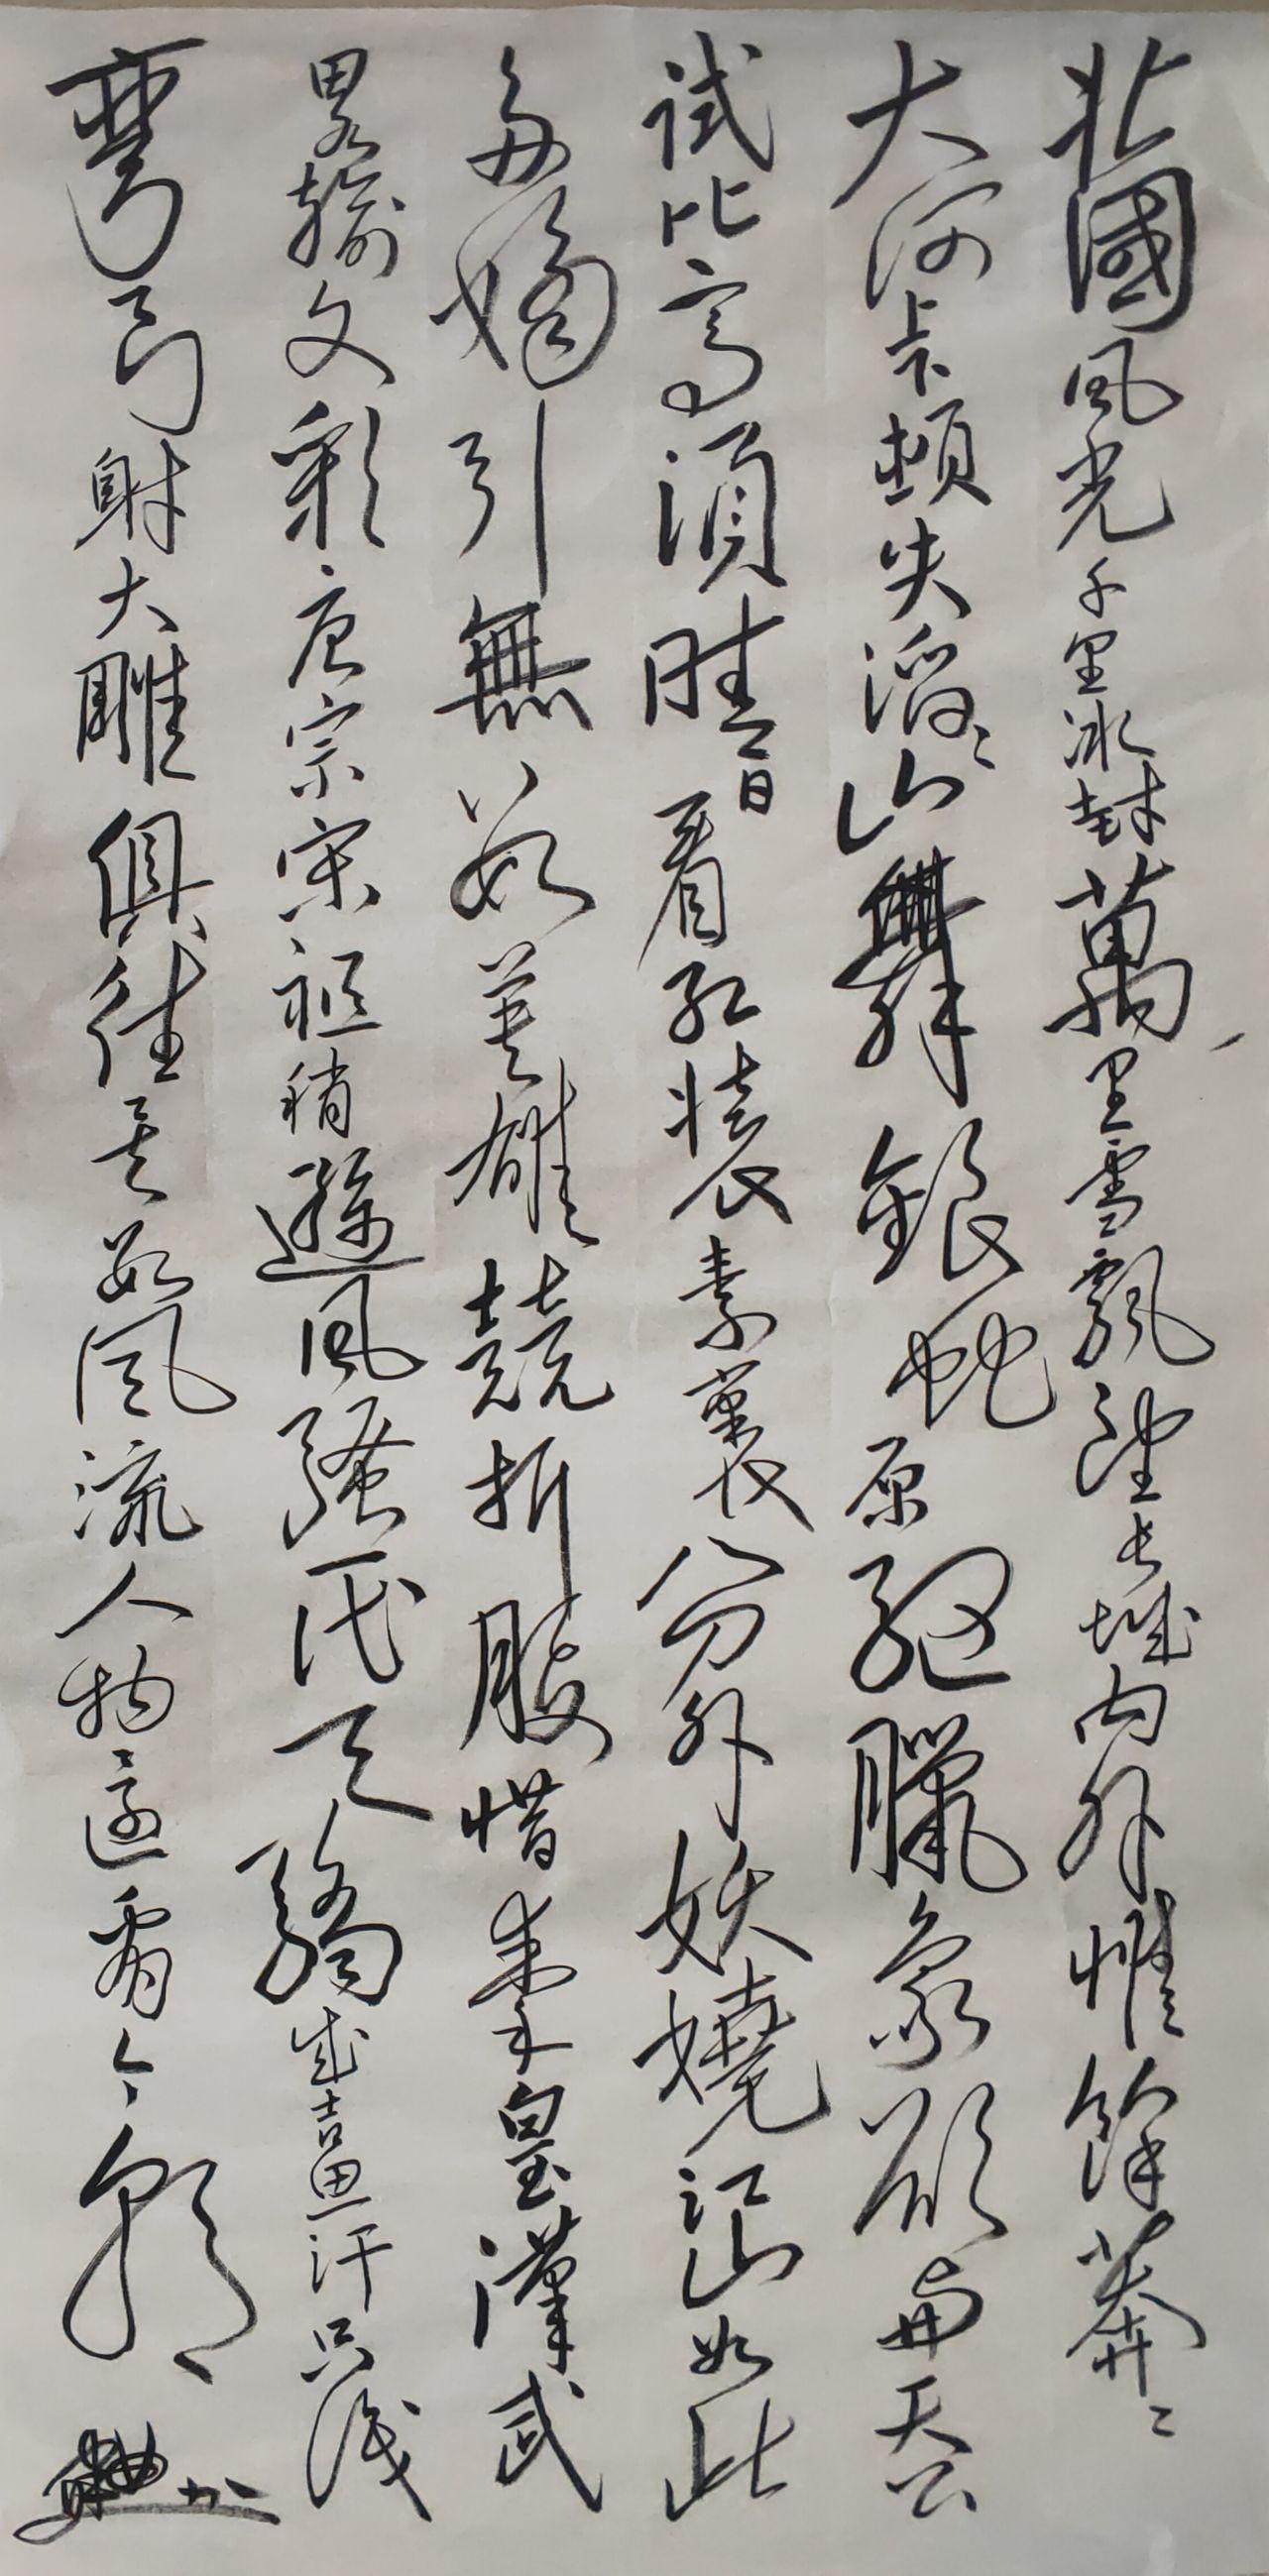 北國風光千里冰封萬里雪飄望长城内外惟餘莽〻
大河上下頓失滔〻山舞銀蛇原馳臘象欲與天公
試比高須晴日看红装素裹分外妖嬈江山如此
多嬌引無数英雄競折腰惜秦皇漢武
畧輸文彩唐宗宋祖稍遜風騷一代天驕成吉思汗只識
彎弓射大雕俱往矣数風流人物還看今朝